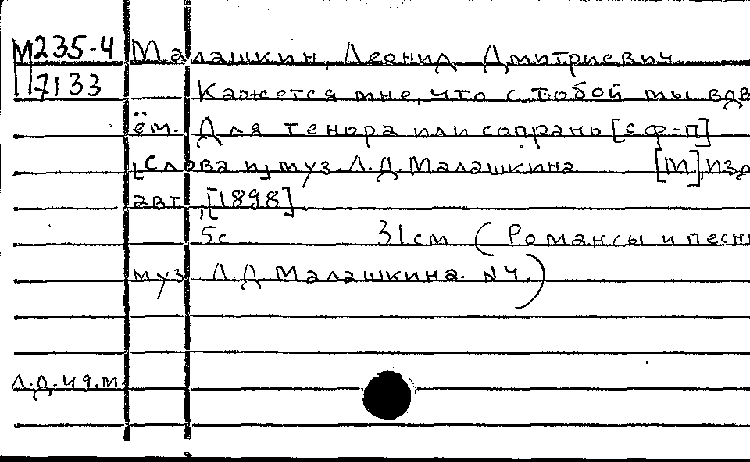 М235-4 Малашкин, Леонид Дмитриевич
7133 Кажется мне, что с тобой мы вдв
ём. Для тенора или сопрано [с ф-п]
[Слова и] муз. Л.Д. Малашкина [М], изд.
авт., [1898]
5с 31см (Романсы и песни
муз. Л.Д. Малашкина. №4.)